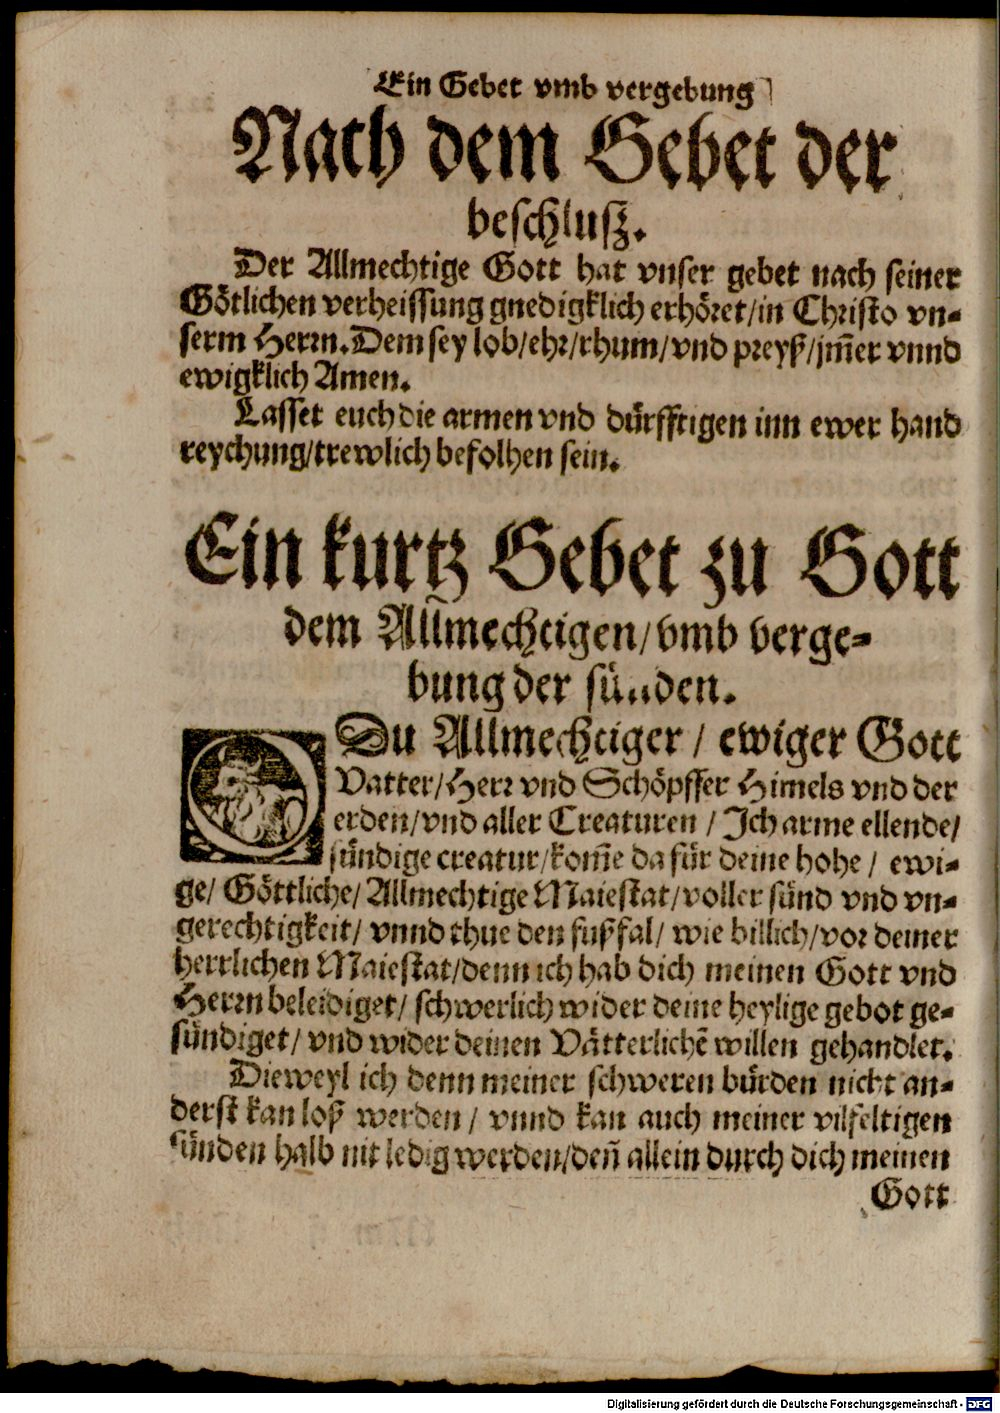 Ein Gebet vmb vergebung
Nach dem Gebet der
beschlusz.
Der Allmechtige Gott hat vnser gebet nach seiner
Götlichen verheissung gnedigklich erhöret/in Christo vn-
serm Herrn. Dem sey lob/ehr/rhum/vnd preyß/jm̄er vnnd
ewigklich Amen.
Lasset euch die armen vnd dürfftigen inn ewer hand
reychung/trewlich befolhen sein.
Ein kurtz Gebet zu Gott
dem Allmechtigen/vmb verge-
bung der sünden.
O Du Allmechtiger / ewiger Gott
Vatter/Herr vnd Schöpffer Himels vnd der
erden/vnd aller Creaturen / Ich arme ellende/
sündige creatur/kom̄e da für deine hohe / ewi-
ge/ Göttliche/ Allmechtige Maiestat/voller sünd vnd vn-
gerechtigkeit/ vnnd thue den fußfal/ wie billich/vor deiner
herrlichen Maiestat/denn ich hab dich meinen Gott vnd
Herrn beleidiget/ schwerlich wider deine heylige gebot ge-
sündiget/ vnd wider deinen Vätterlichē willen gehandlet.
Dieweyl ich denn meiner schweren bürden nicht an-
derst kan loß werden / vnnd kan auch meiner vilfeltigen
sünden halb nit ledig werden/den̄ allein durch dich meinen
Gott
Digitalisierung gefördert durch die Deutsche Forschungsgemeinschaft - DFG